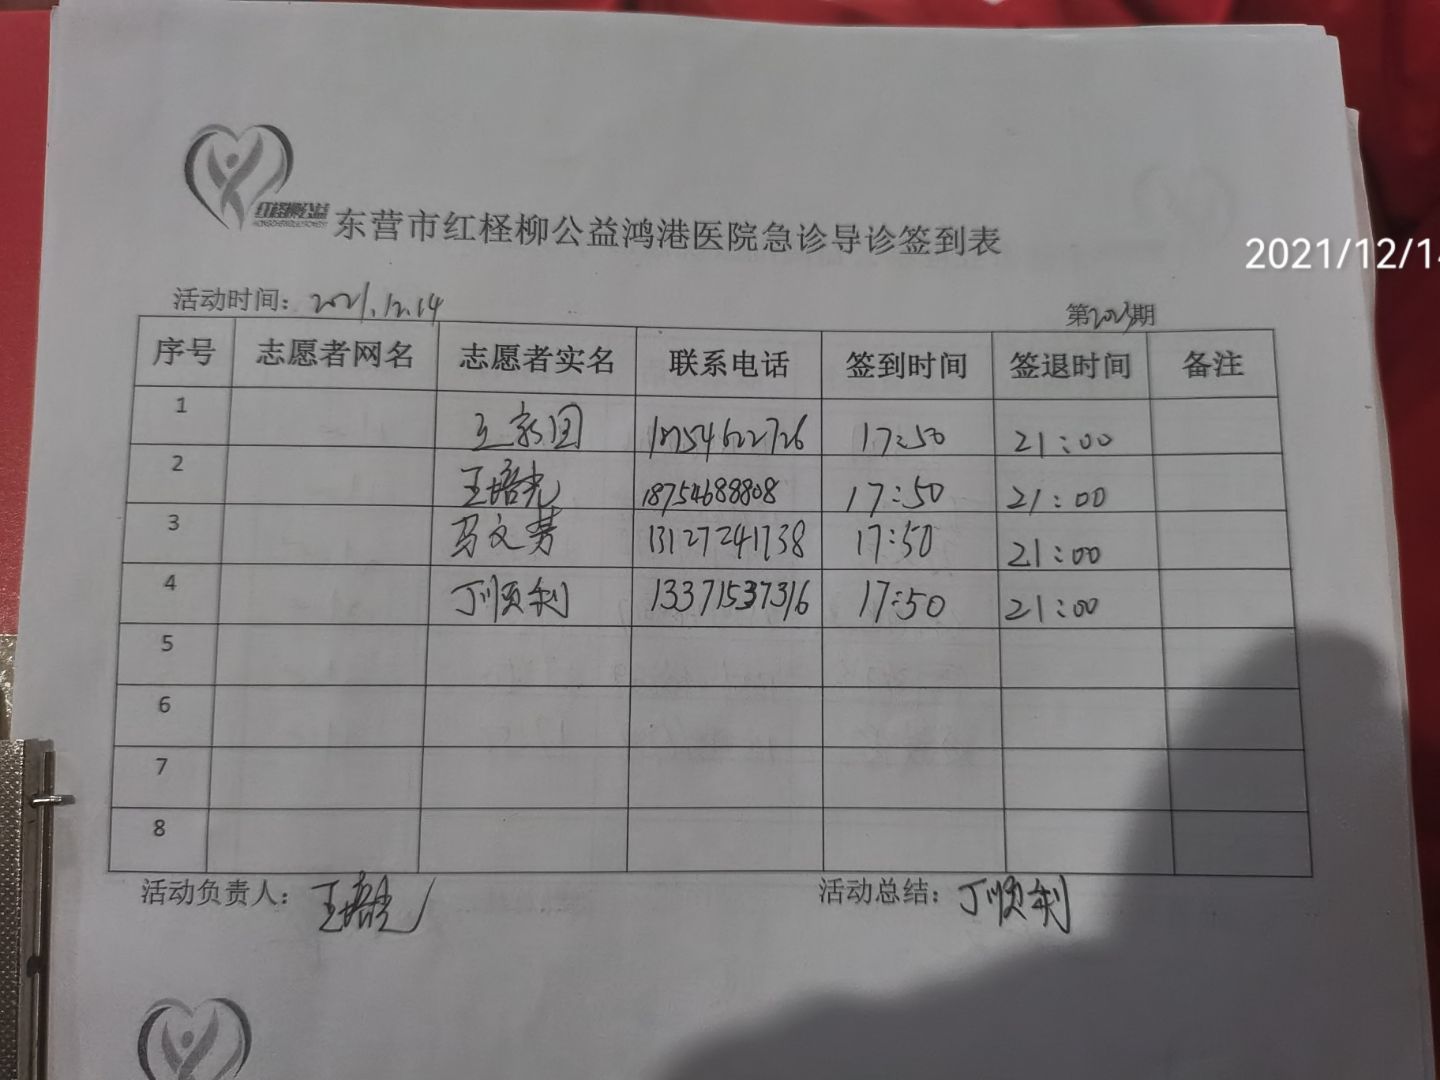 红柽柳公益
东营市红柽柳公益鸿港医院急诊导诊签到表
2021/12/14
活动时间：2021.12.14
第 期
序号 志愿者网名 志愿者实名 联系电话 签到时间 签退时间 备注
1 王 17:50 21:00
2 王培光 18754688808 17:50 21:00
3 马文 13127241738 17:50 21:00
4 丁顺利 13371537316 17:50 21:00
5
6
7
8
活动负责人：王培光
活动总结：丁顺利